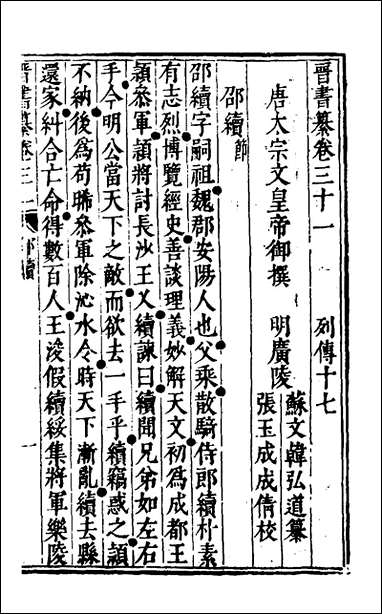 晉書纂卷三十一　列傳十七
唐太宗文皇帝御撰　明廣陵
蘇文韓弘道纂
張玉成成倩校
邵續節
邵續字嗣祖魏郡安陽人也父乘散騎侍郎續朴素
有志烈博覽經史善談理義妙解天文初為成都王
穎叅軍穎將討長沙王乂續諫曰續聞兄弟如左右
手今明公當天下之敵而欲去一手乎續竊惑之穎
不納後為苟晞叅軍除沁水令時天下漸亂續去縣
還家糾合亡命得數百人王浚假續綏集將軍樂陵
晉書纂卷三十一